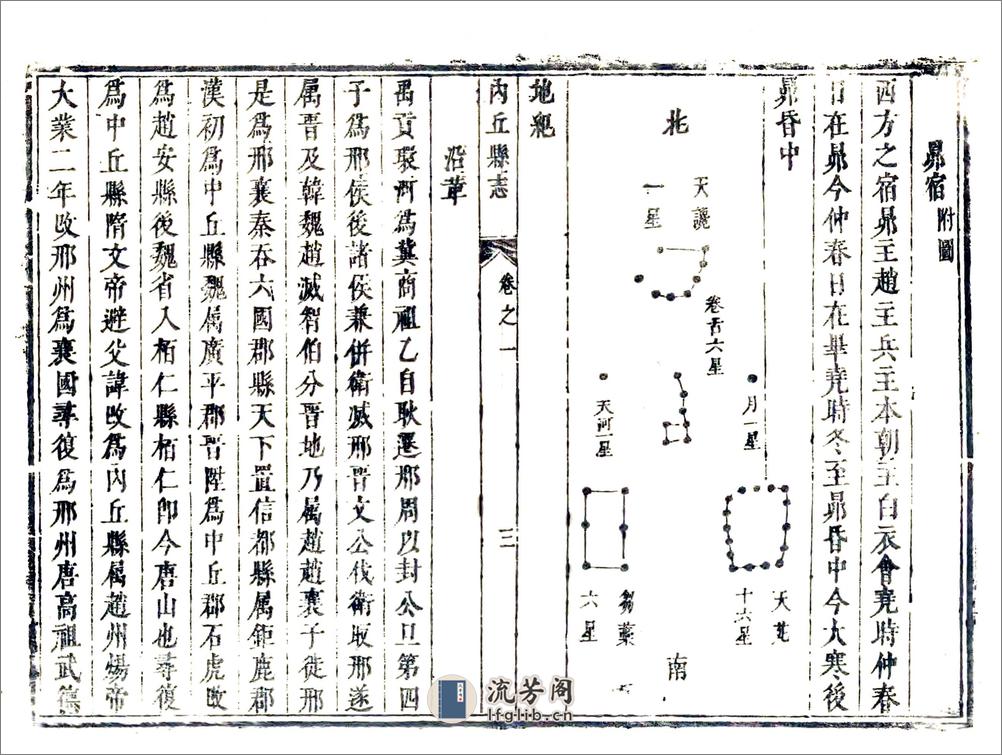 昴宿附圖
西方之宿昴主趙主兵主本朝主白衣會堯時仲春
日在昴今仲春日在畢堯時冬至昴昏中今大寒後
昴昏中
北
天讒
一星
卷舌六星
月一星
天河一星
天苑
十六星
芻藁
六星
南
地紀
內丘縣志
卷之一
三
沿革
禹貢
為冀商祖乙自耿遷邢周以封公旦第四
子為邢侯後諸侯兼併衛滅邢晉文公伐衛取邢遂
属晉及韓魏趙滅智伯分晉地乃属趙趙襄子徙邢
是為邢襄秦吞六國郡縣天下置信都縣属鉅鹿郡
漢初為中丘縣魏属廣平郡晉陞為中丘郡石虎改
為趙安縣後魏省入栢仁縣栢仁即今唐山也尋復
為中丘縣隋文帝避父諱改為內丘縣属趙州煬帝
大業二年改邢州為襄國尋復為邢州唐高祖武德
流芳阁
lfglib.cn